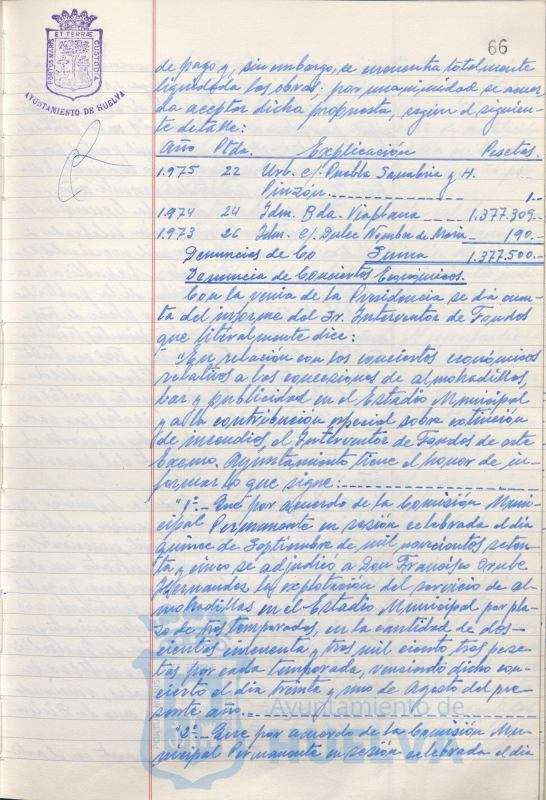 66
PORTUS MARIS ET TERRÆ CUSTODIA
AYUNTAMIENTO DE HUELVA
de pago y, sin embargo, se encuentra totalmente
liquidada las obras, por unanimidad se acuer-
da aceptar dicha propuesta, según el siguien-
te detalle:
Año Ptda. Explicación Pesetas.
1.975 22 Urb. c/. Puebla Sanabria y H.
Pinzón. 1.-
1.974 24 Idm. Bda. Viaplana 1.377.309.-
1.973 26 Idm. c/. Dulce Nombre de María 190.-
Denuncias de Co Suma 1.377.500.-
Denuncia de Conciertos Económicos.
Con la venia de la Presidencia se da cuen-
ta del informe del Sr. Interventor de Fondos
que literalmente dice:
"En relación con los conciertos económicos
relativos a las concesiones de almohadillas,
bar y publicidad en el Estadio Municipal
y a la contribución especial sobre extinción
de incendios, el Interventor de Fondos de este
Excmo. Ayuntamiento tiene el honor de in-
formar lo que sigue:
"1º.- Que por acuerdo de la Comisión Muni-
cipal Permanente en sesión celebrada el día
quince de Septiembre de mil novecientos seten-
ta y cinco se adjudicó a Don Francisco
Hernandez la explotación del servicio de al-
mohadillas en el Estadio Municipal por pla-
zo de tres temporadas, en la cantidad de dos-
cientos cincuenta y tres mil ciento tres pese-
tas por cada temporada, venciendo dicho con-
cierto el día treinta y uno de Agosto del pre-
sente año.
"2º.- Que por acuerdo de la Comisión Mu-
nicipal Permanente en sesión celebrada el día
Ayuntamiento de
HUELVA